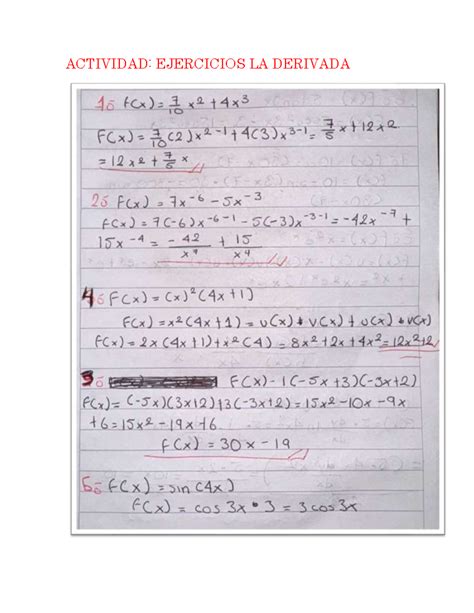 ACTIVIDAD: EJERCICIOS LA DERIVADA
1ó f(x) = 7/10 x² + 4x³
F(x) = 7/10 (2) x²⁻¹ + 4(3) x³⁻¹ = 7/5 x + 12x²
= 12x² + 7/5 x
2ó F(x) = 7x⁻⁶ - 5x⁻³
f(x) = 7(-6)x⁻⁶⁻¹ - 5(-3)x⁻³⁻¹ = -42x⁻⁷ +
15x⁻⁴ = -42/x⁷ + 15/x⁴
4ó F(x) = (x)² (4x+1)
F(x) = x² (4x+1) = u(x) * v(x) + u(x) * v(x)
F(x) = 2x (4x+1) + x² (4) = 8x² + 2x + 4x² = 12x²+2
3ó F(x) - 1(-5x+3)(-3x+2)
f(x) = (-5x)(3x+2)+3(-3x+2) = 15x² - 10x - 9x
+6 = 15x² - 19x + 6
f(x) = 30x - 19
5ó f(x) = sin(4x)
F(x) = cos 3x • 3 = 3 cos 3x